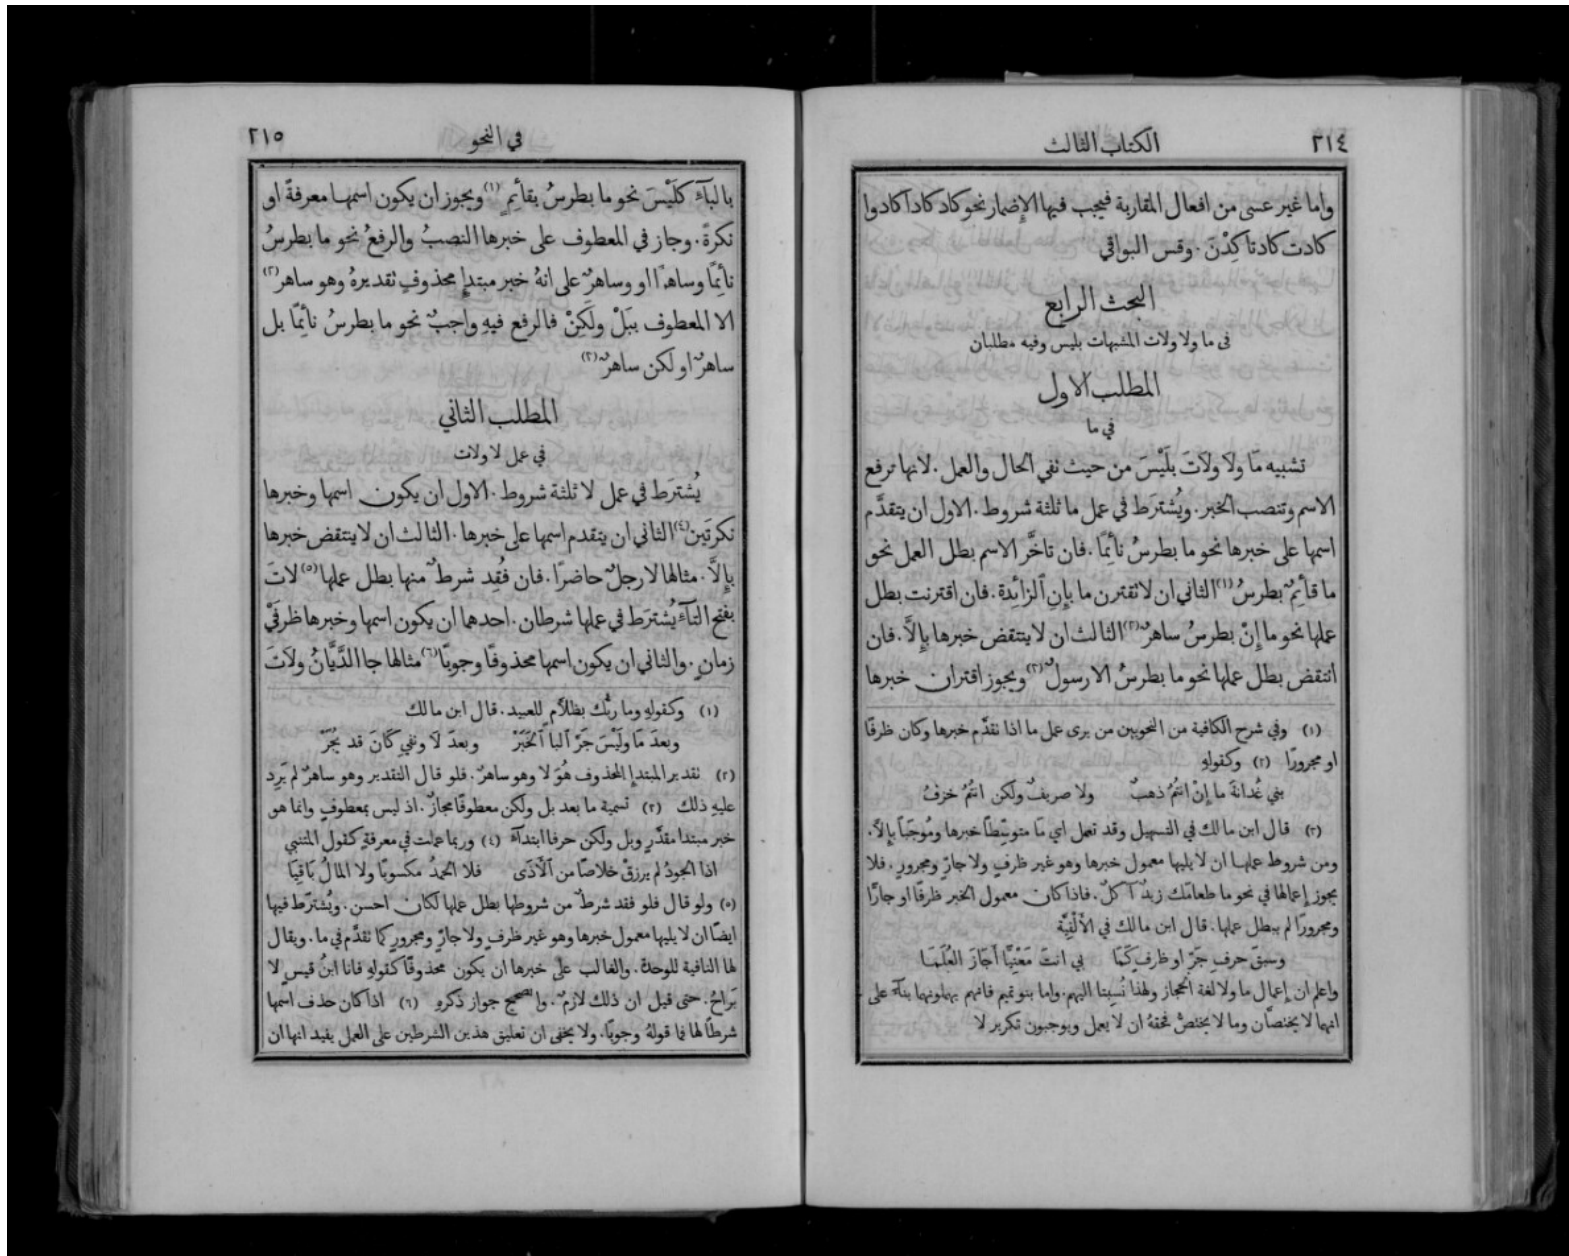 ٢١٤
الكتاب الثالث
واما غير عسى من افعال المقاربة فيجب فيها الإضمار نحو كاد كادا كادوا
كادت كادتا كِدْنَ. وقس البواقي
البحث الرابع
في ما ولا ولات المشبهات بليس وفيه مطلبان
المطلب الاول
في ما
تشبيه مَا ولَا ولَاتَ بلَيْسَ من حيث نفي الحال والعمل. لانها ترفع
الاسم وتنصب الخبر. ويُشترَط في عمل ما ثلثة شروط. الاول ان يتقدَّم
اسمها على خبرها نحو ما بطرسُ نائِمًا. فان تاخَّر الاسم بطل العمل نحو
ما قائِمٌ بطرسُ(١) الثاني ان لا تقترن ما بإِنِ الزائِدة. فان اقترنت بطل
عملها نحو ما إِنْ بطرسُ ساهرٌ(٢) الثالث ان لا ينتقض خبرها بإِلَّا. فان
انتقض بطل عملها نحو ما بطرسُ الا رسولٌ(٣) ويجوز اقتران خبرها
(١) وفي شرح الكافية من النحويين من يرى عمل ما اذا تقدَّم خبرها وكان ظرفًا
او مجرورًا (٢) وكقولهِ
بني غُدانةَ ما إِنْ انتُمُ ذهبٌ ولا صريفٌ ولكن انتُمُ خزفُ
(٣) قال ابن مالك في التسهيل وقد تعمل اي مَا متوسِّطًا خبرها ومُوجَبًا بإِلَّا.
ومن شروط عملها ان لا يليها معمول خبرها وهو غير ظرفٍ ولا جارٍّ ومجرورٍ. فلا
يجوز إِعمالها في نحو ما طعامَك زيدٌ آكلٌ. فاذا كان معمول الخبر ظرفًا او جارًّا
ومجرورًا لم يبطل عملها. قال ابن مالك في الأَلْفِيَّة
وسبقَ حرفِ جَرٍّ او ظرفٍ كَمَا بي انتَ مَعْنِيًّا أَجَازَ العُلَمَا
واعلم ان إِعمال ما ولا لغة الحجاز ولهذا نُسِبتا اليهم. واما بنو تميم فانهم يهملونهما بناءً على
انهما لا يختصَّان وما لا يختصُّ فحقهُ ان لا يعمل ويوجبون تكرير لا
٢١٥
في النحو
بالباءِ كلَيْسَ نحو ما بطرسُ بقائِمٍ(١) ويجوز ان يكون اسمها معرفةً او
نكرةً. وجاز في المعطوف على خبرها النصبُ والرفعُ نحو ما بطرسُ
نائِمًا وساهرًا او وساهرٌ على انهُ خبر مبتدإٍ محذوفٍ تقديرهُ وهو ساهر(٢)
الا المعطوف ببَلْ ولَكِنْ فالرفع فيهِ واجبٌ نحو ما بطرسُ نائِمًا بل
ساهرٌ او لكن ساهرٌ(٣)
المطلب الثاني
في عمل لا ولات
يُشترَط في عمل لا ثلثة شروط. الاول ان يكون اسمها وخبرها
نكرتَين(٤) الثاني ان يتقدم اسمها على خبرها. الثالث ان لا ينتقض خبرها
بإِلَّا. مثالها لا رجلٌ حاضرًا. فان فُقِد شرطٌ منها بطل عملها(٥) لاتَ
بفتح التاءِ يُشترَط في عملها شرطان. احدهما ان يكون اسمها وخبرها ظرفَيْ
زمانٍ. والثاني ان يكون اسمها محذوفًا وجوبًا(٦) مثالها جا الدَّيَّانُ ولَاتَ
(١) وكقولهِ وما ربُّك بظلَّامٍ للعبيد. قال ابن مالك
وبعدَ مَا ولَيْسَ جَرَّ البا الخَبَرْ وبعدَ لَا ونفيِ كَانَ قد يُجَرّْ
(٢) تقدير المبتدإِ المحذوف هُوَ لا وهو ساهرٌ. فلو قال التقدير وهو ساهرٌ لم يَرِد
عليهِ ذلك (٣) تسمية ما بعد بل ولكن معطوفًا مجازٌ. اذ ليس بمعطوفٍ وانما هو
خبر مبتدا مقدَّرٍ وبل ولكن حرفا ابتداءٍ (٤) وربما عملت في معرفةٍ كقول المتنبي
اذا الجودُ لم يرزقْ خلاصًا من الأَذَى فلا الحمدُ مكسوبًا ولا المالُ بَاقِيَا
(٥) ولو قال فلو فقد شرطٌ من شروطها بطل عملها لكان احسن. ويُشترَط فيها
ايضًا ان لا يليها معمول خبرها وهو غير ظرفٍ ولا جارٍّ ومجرورٍ كما تقدَّم في ما. ويقال
لها النافية للوحدة. والغالب على خبرها ان يكون محذوفًا كقولهِ فانا ابنُ قيسٍ لا
بَراحُ. حتى قيل ان ذلك لازمٌ. والصحيح جواز ذكرهِ (٦) اذا كان حذف اسمها
شرطًا لها فما قولهُ وجوبًا. ولا يخفى ان تعليق هذين الشرطين على العمل يفيد انها ان